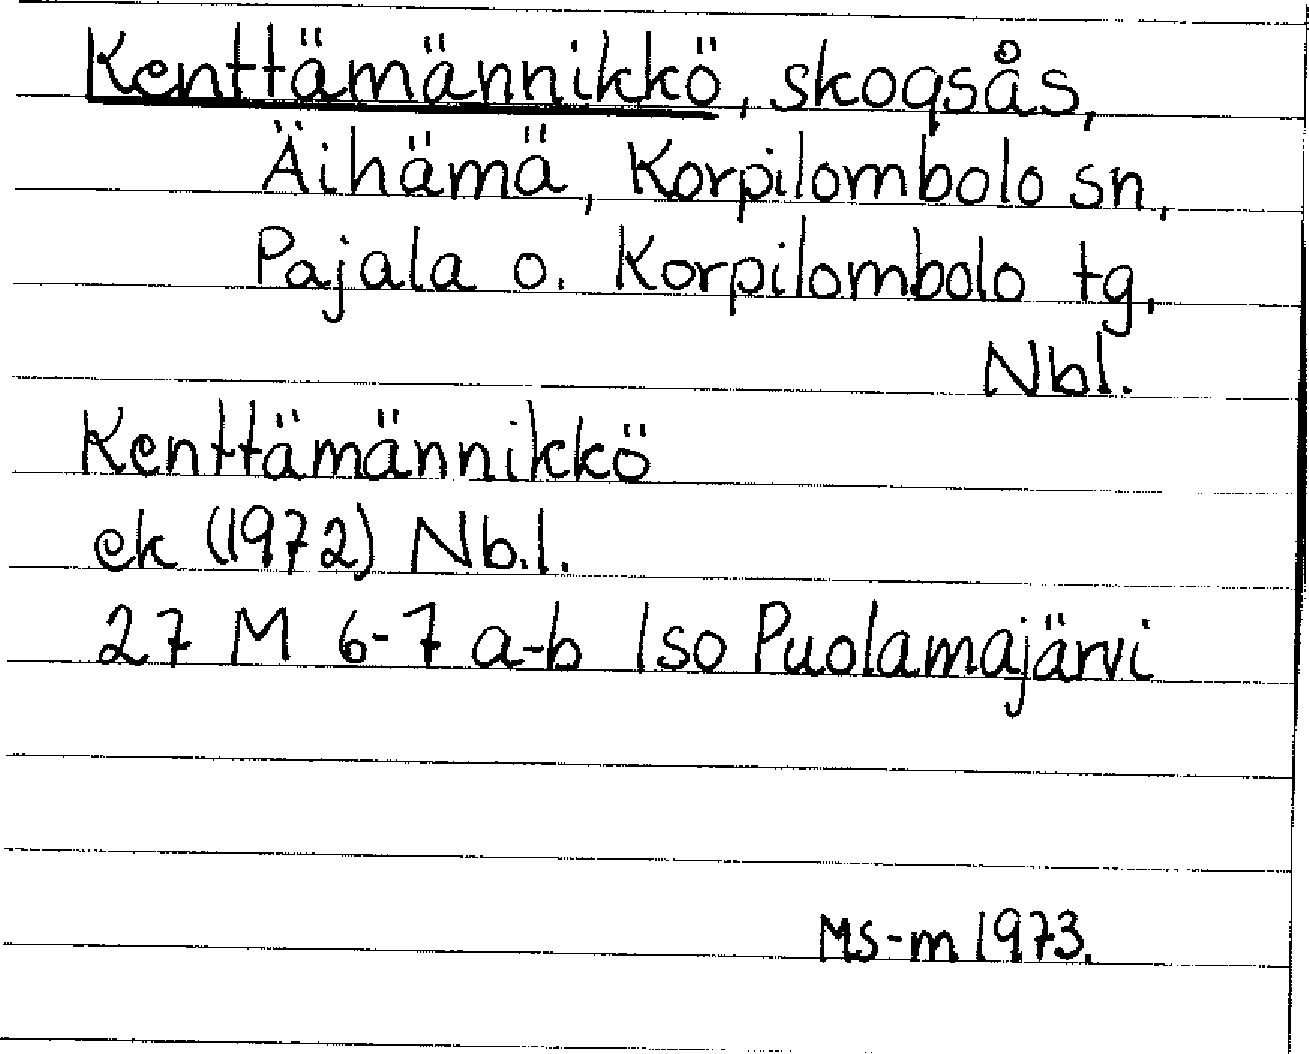 Kenttämännikkö, skogsås,
Äihämä, Korpilombolo sn,
Pajala o. Korpilombolo tg,
Nbl.
Kenttämännikkö
ek (1972) Nb.l.
27 M 6-7 a-b Iso Puolamajärvi
MS-m 1973.